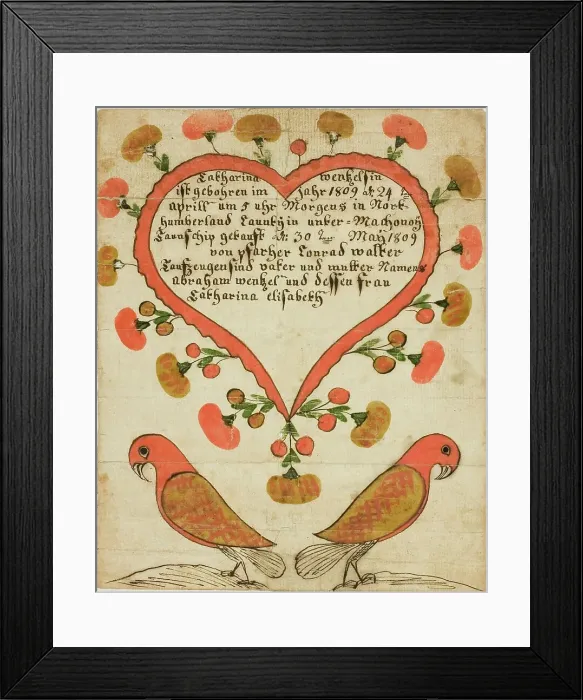 Catharina wentzelsin
ist gebohren im Jahr 1809 d: 24 te
aprill um 5 uhr Morgens in Nort-
humberland Caunty in unter = Machonoy
Taunschip getauft d: 30 May 1809
von pfarher Conrad walter
Taufzeugen sind vater und mutter Namens
abraham wentzel und dessen frau
Catharina elisabeth